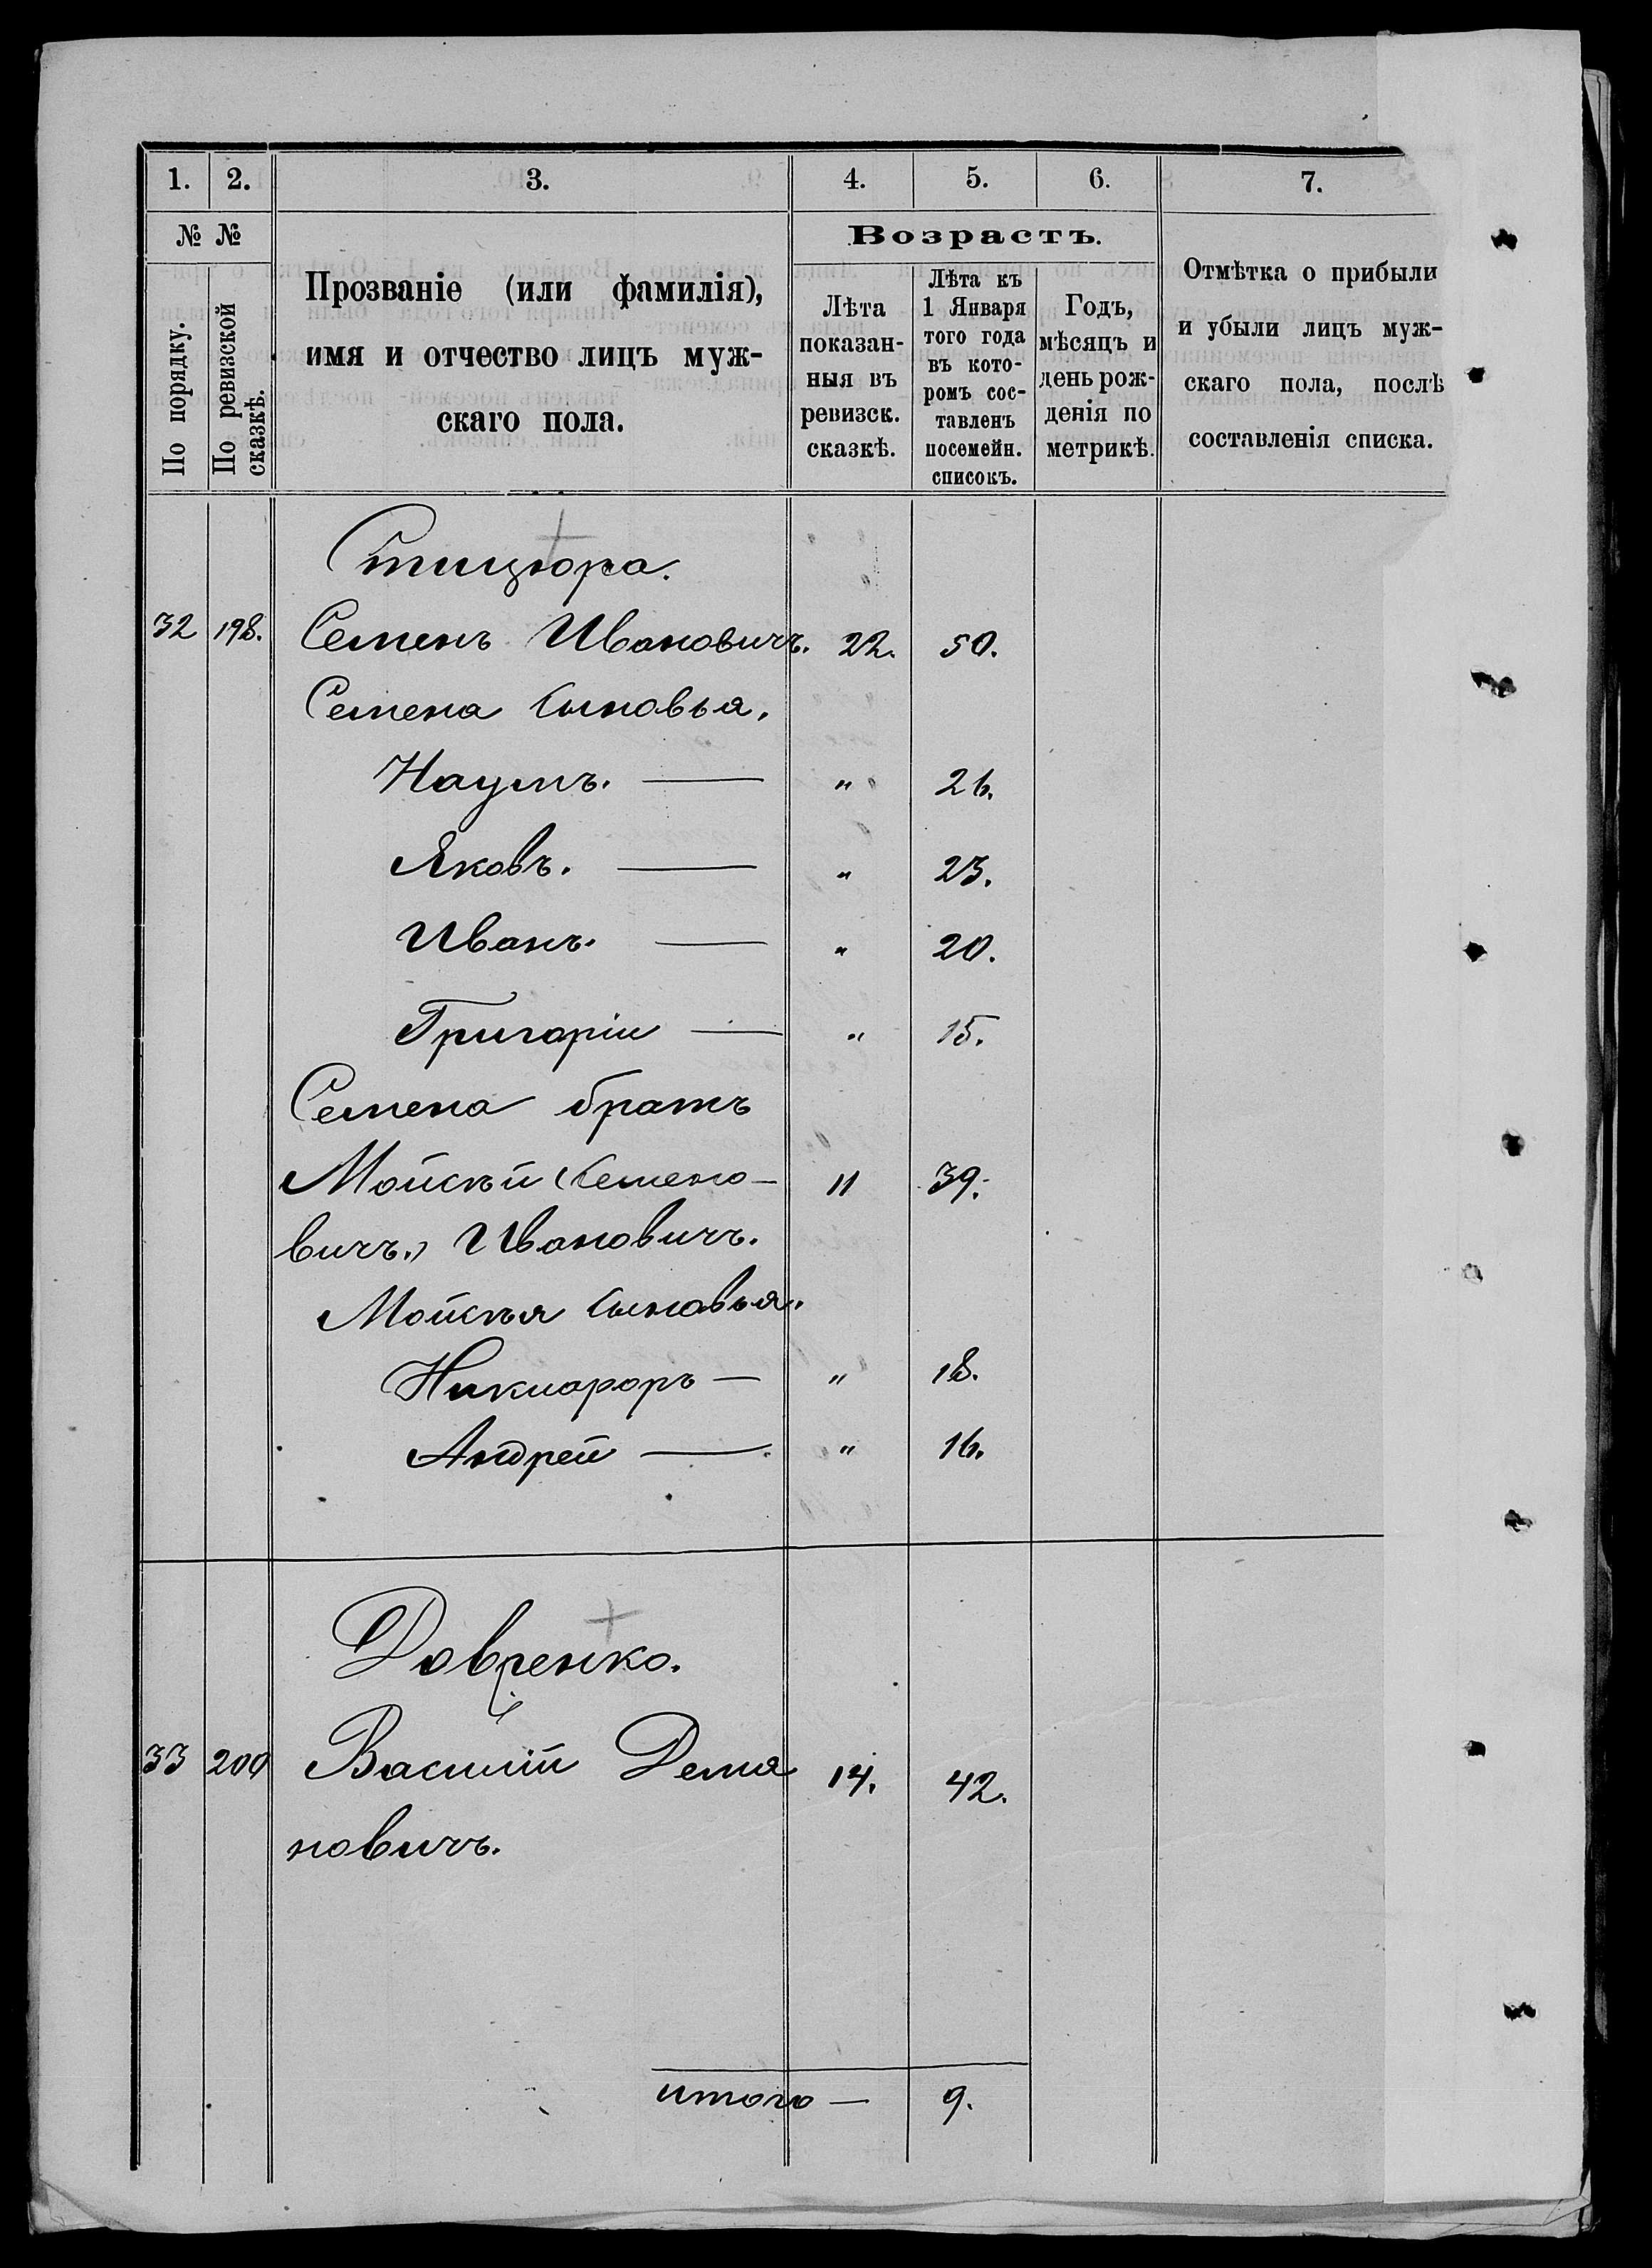 1. 2. 3. 4. 5. 6. 7.
№ №
По порядку.
По ревизской сказкѣ.
Прозваніе (или фамилія),
имя и отчество лицъ муж-
скаго пола.
Возрастъ.
Лѣта
показан-
ныя въ
ревизск.
сказкѣ.
Лѣта къ
1 Января
того года
въ кото-
ромъ сос-
тавленъ
посемейн.
списокъ.
Годъ,
мѣсяцъ и
день рож-
денія по
метрикѣ.
Отмѣтка о прибыли
и убыли лицъ муж-
скаго пола, послѣ
составленія списка.
Стицюра.
32 198. Семенъ Ивановичъ. 22. 50.
Семена сыновья.
Наумъ. — " 26.
Яковъ. — " 23.
Иванъ. — " 20.
Григоріи — " 15.
Семена братъ
Мойсѣй (Семено- 11 39.
вичъ.) Ивановичъ.
Мойсѣя сыновья.
Никифоръ — " 18.
Андрей — " 16.
Довренко.
33 200 Василій Демя 14. 42.
новичъ.
итого — 9.